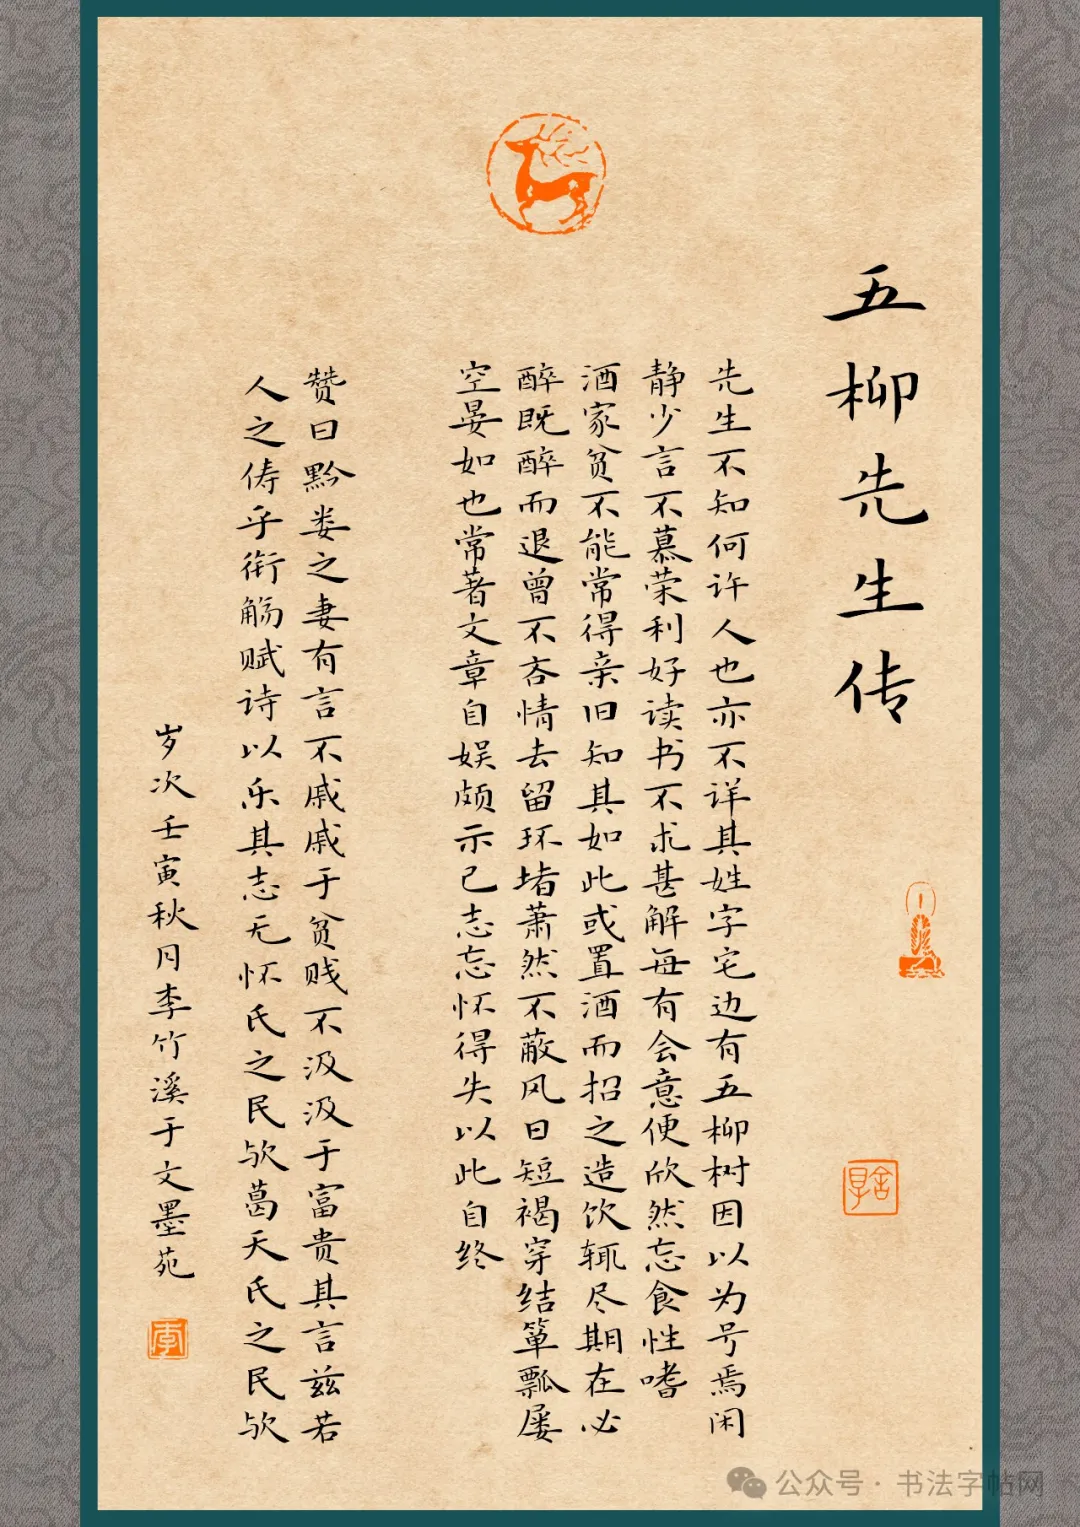 五柳先生传
先生不知何许人也亦不详其姓字宅边有五柳树因以为号焉闲
静少言不慕荣利好读书不求甚解每有会意便欣然忘食性嗜
酒家贫不能常得亲旧知其如此或置酒而招之造饮辄尽期在必
醉既醉而退曾不吝情去留环堵萧然不蔽风日短褐穿结箪瓢屡
空晏如也常著文章自娱颇示己志忘怀得失以此自终
赞曰黔娄之妻有言不戚戚于贫贱不汲汲于富贵其言兹若
人之俦乎衔觞赋诗以乐其志无怀氏之民欤葛天氏之民欤
岁次壬寅秋月李竹溪于文墨苑
李
公众号·书法字帖网